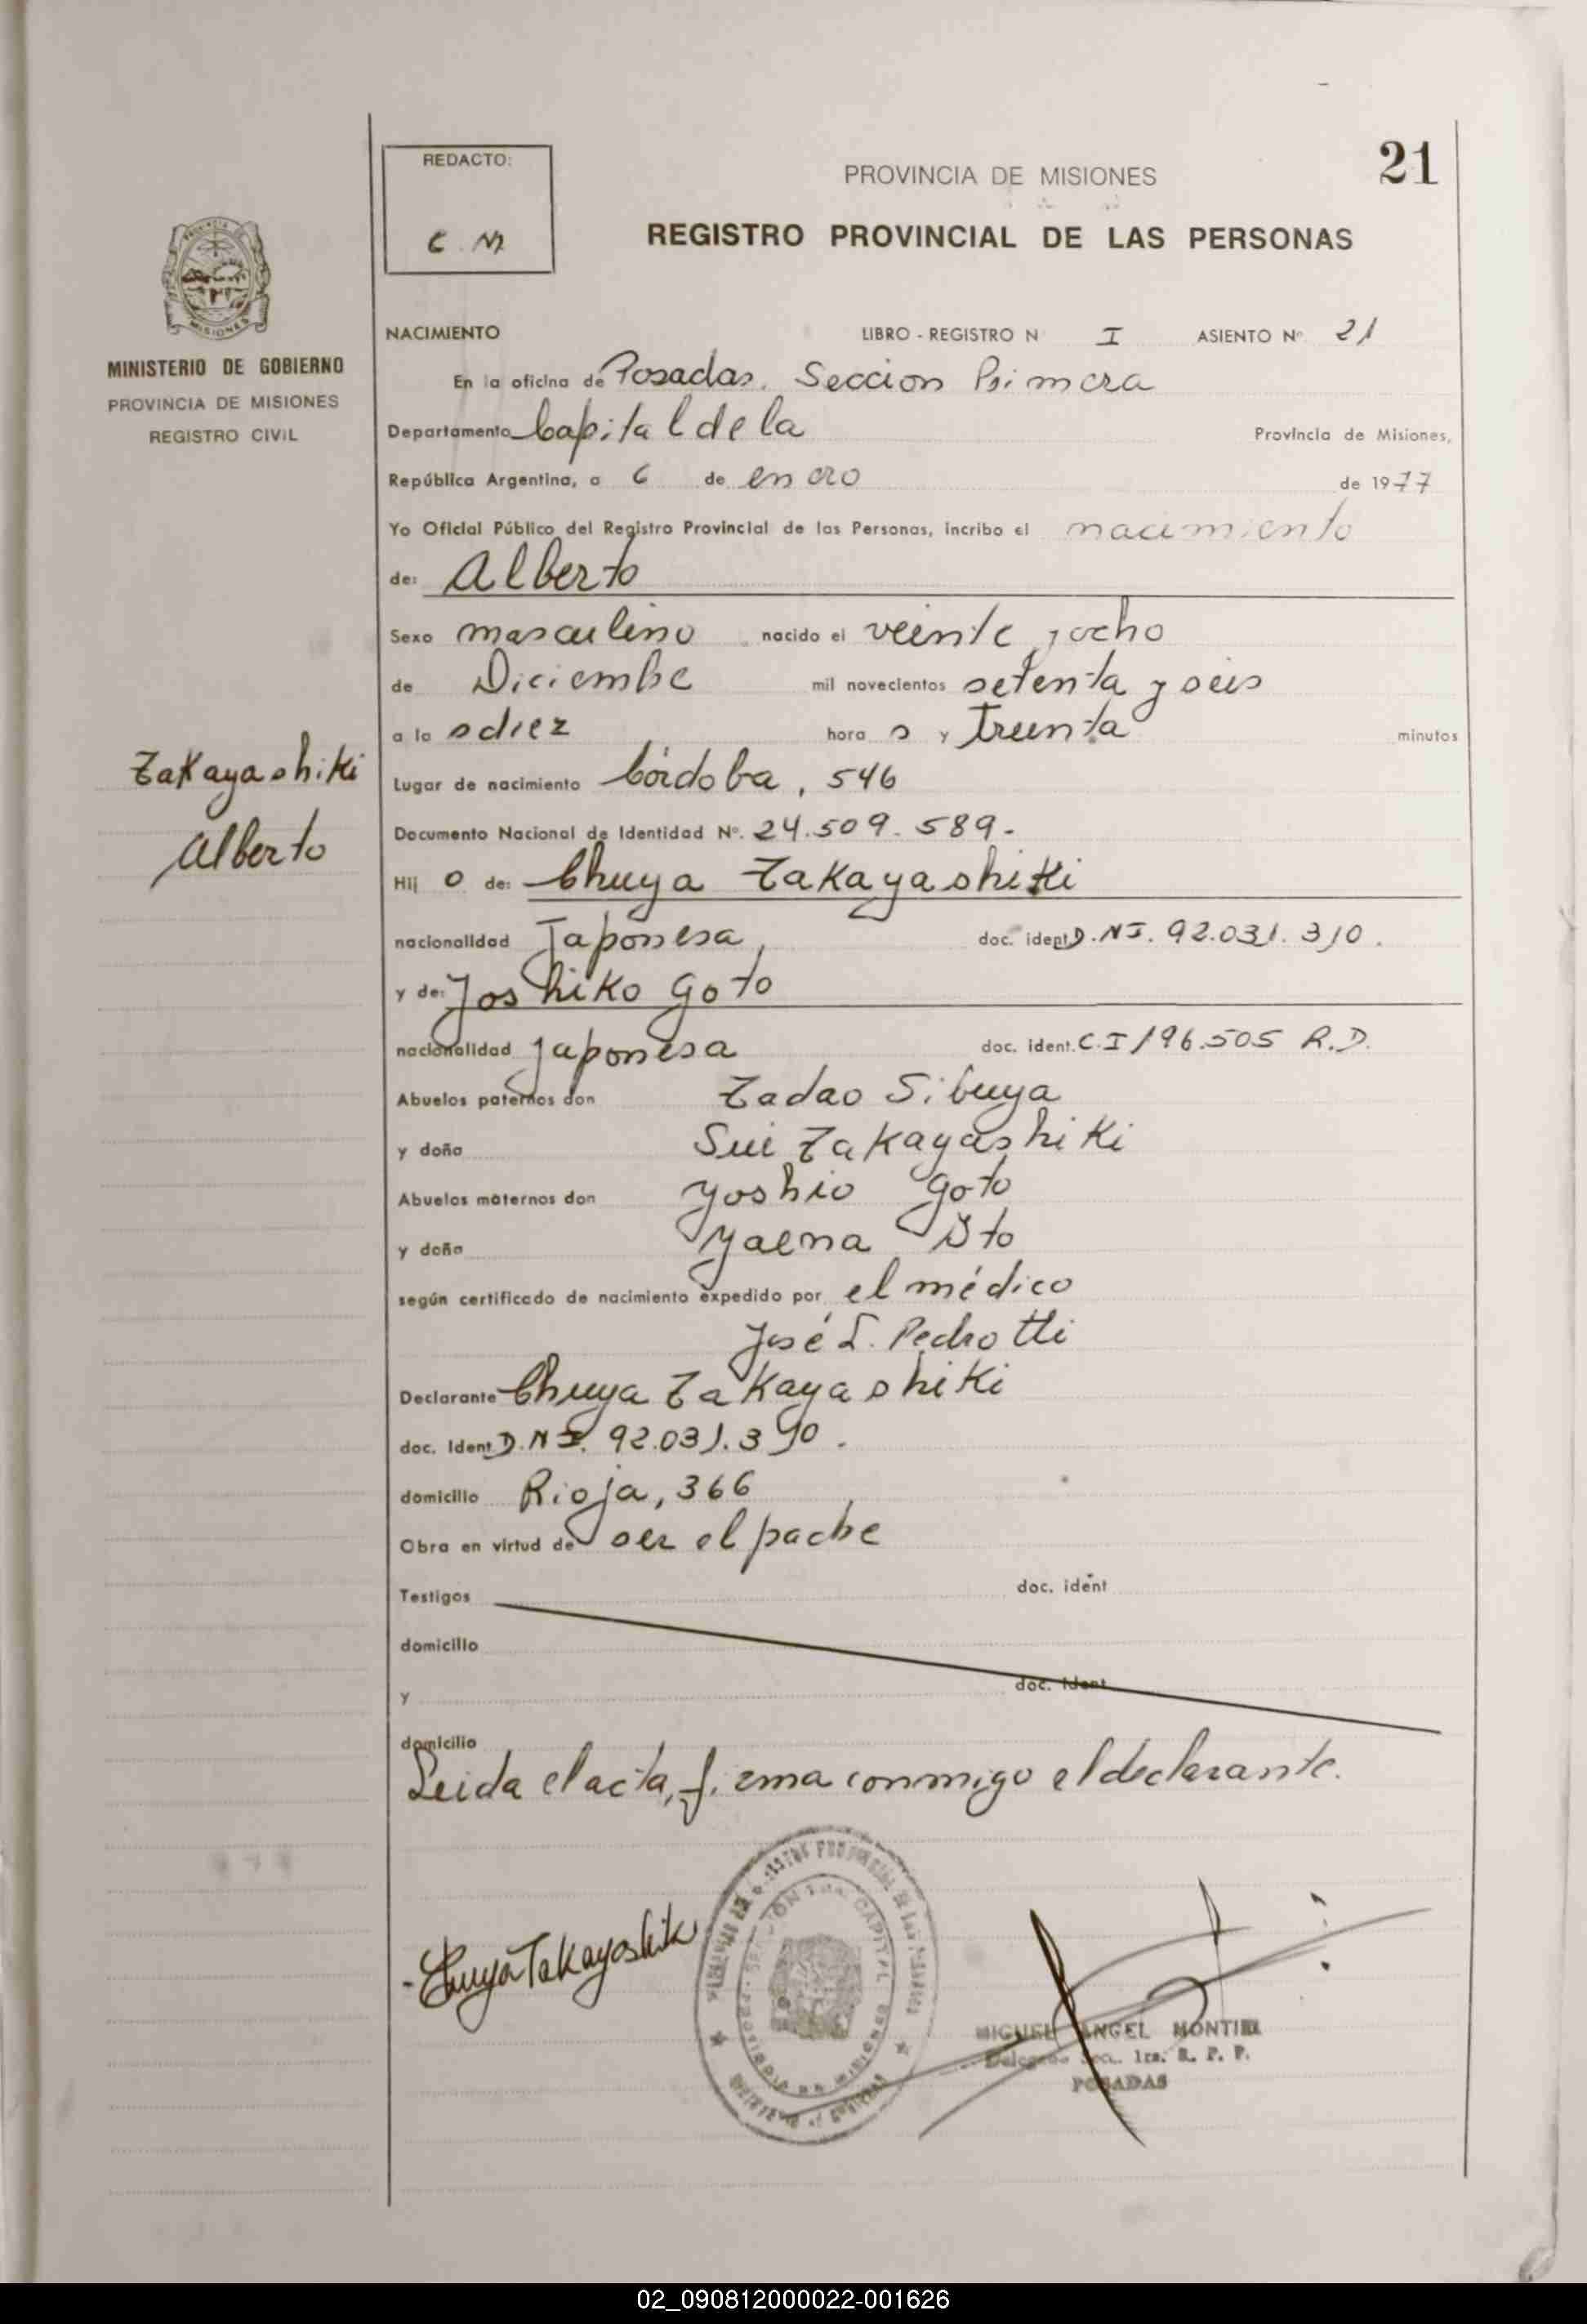 REDACTO:
C. M
PROVINCIA DE MISIONES
21
REGISTRO PROVINCIAL DE LAS PERSONAS
MISIONES
MINISTERIO DE GOBIERNO
PROVINCIA DE MISIONES
REGISTRO CIVIL
NACIMIENTO LIBRO - REGISTRO N I ASIENTO Nº 21
En la oficina de Posadas. Seccion Primera
Departamento Capital de la Provincia de Misiones,
República Argentina, a 6 de enero de 1977
Yo Oficial Público del Registro Provincial de las Personas, incribo el nacimiento
de: Alberto
Sexo masculino nacido el veinte y ocho
de Diciembre mil novecientos setenta y seis
a la s diez hora s y treinta minutos
Takayashiki
Alberto
Lugar de nacimiento Córdoba, 546
Documento Nacional de Identidad Nº. 24.509.589.-
Hij o de: Chuya Takayashiki
nacionalidad Japonesa, doc. ident D.NI. 92.031.310.
y de: Joshiko Goto
nacionalidad japonesa doc. ident. C.I 196.505 R.D.
Abuelos paternos don Tadao Sibuya
y doña Sui Takayashiki
Abuelos maternos don Yoshio Goto
y doña Yaena Ito
según certificado de nacimiento expedido por el médico
José L. Pedrotti
Declarante Chuya Takayashiki
doc. Ident D.NI. 92.031.310.
domicilio Rioja, 366
Obra en virtud de ser el padre
Testigos doc. ident
domicilio
y doc. ident
domicilio
Leida el acta, firma conmigo el declarante.
Chuya Takayashiki
MIGUEL ANGEL MONTIEL
Delegado Sec. 1ra. R. P. P.
POSADAS
02_090812000022-001626